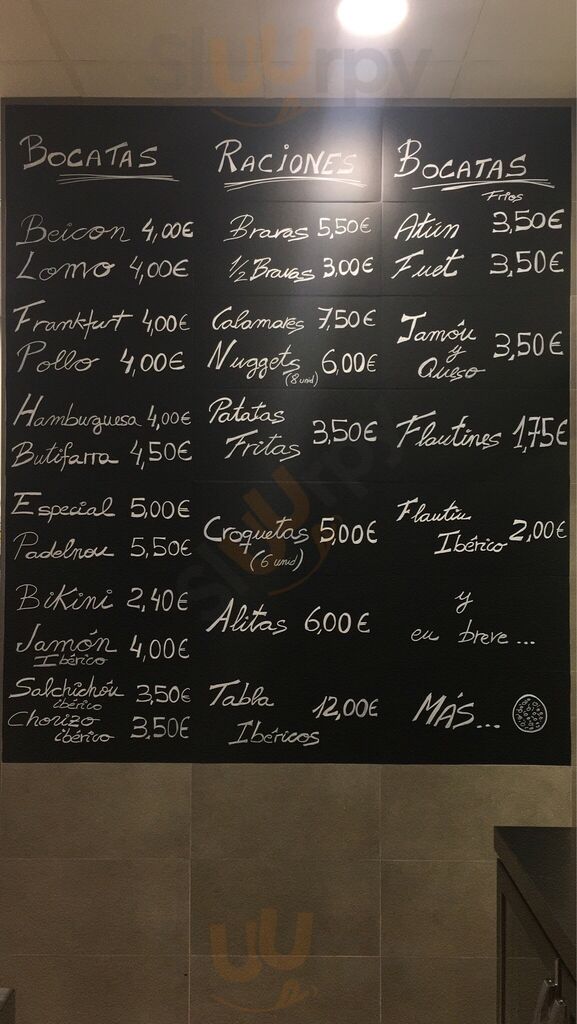 sluurpy
BOCATAS
Beicon 4,00€
Lomo 4,00€
Frankfurt 4,00€
Pollo 4,00€
Hamburguesa 4,00€
Butifarra 4,50€
Especial 5,00€
Padelnou 5,50€
Bikini 2,40€
Jamón 4,00€
Ibérico
Salchichón 3,50€
ibérico
Chorizo 3,50€
ibérico
RACIONES
Bravas 5,50€
1/2 Bravas 3,00€
Calamares 7,50€
Nuggets 6,00€
(8 unid)
Patatas
Fritas 3,50€
Croquetas 5,00€
(6 unid)
Alitas 6,00€
Tabla 12,00€
Ibéricos
BOCATAS
Fríos
Atún 3,50€
Fuet 3,50€
Jamón
y 3,50€
Queso
Flautines 1,75€
Flautín
Ibérico 2,00€
y
en breve...
MÁS...
sluurpy